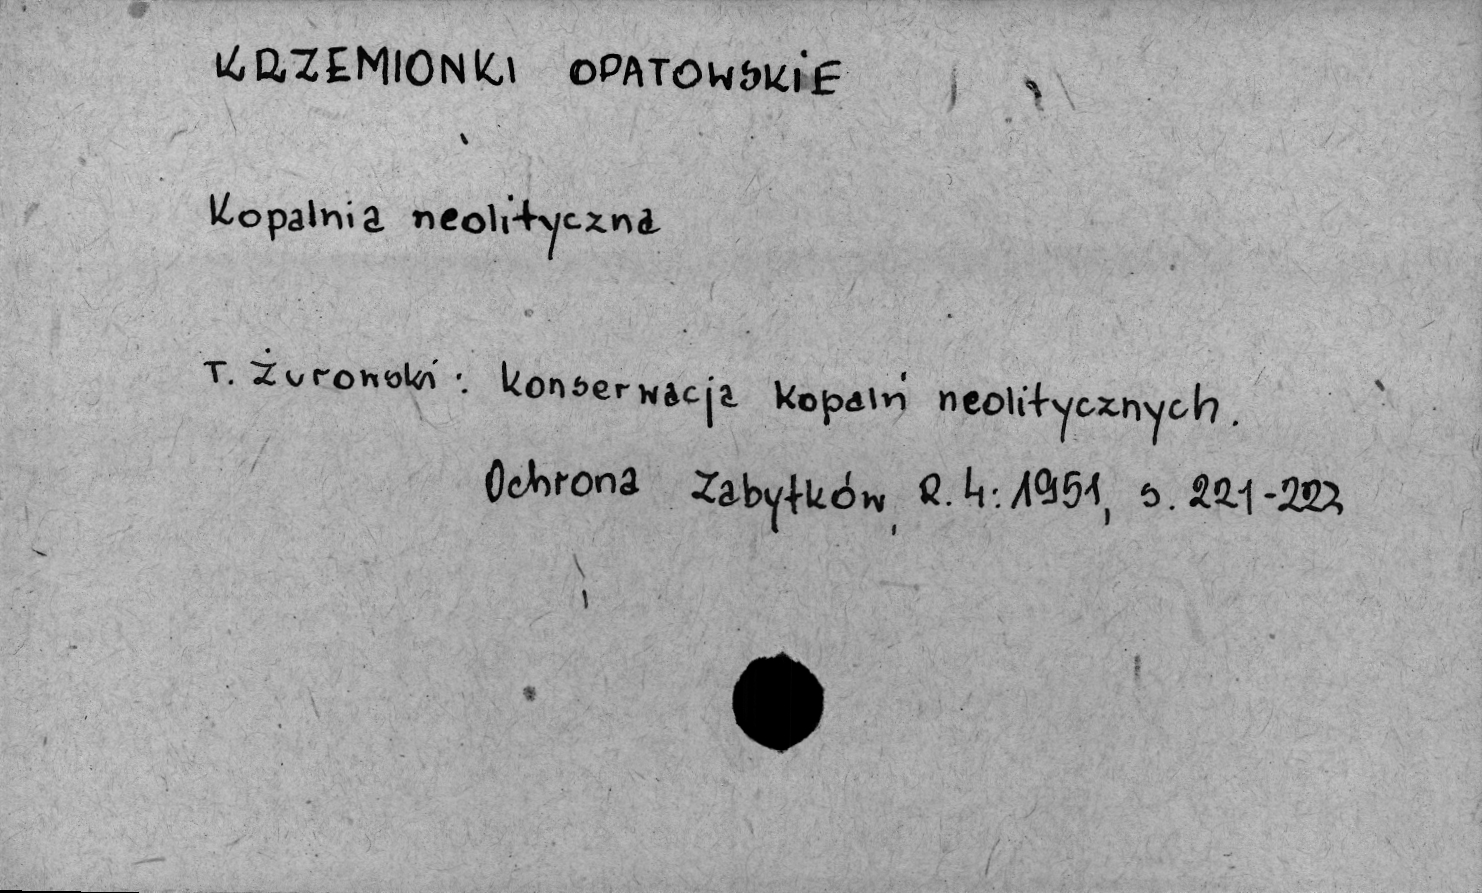 KRZEMIONKI OPATOWSKIE
Kopalnia neolityczna
T. Żurowski: Konserwacja kopalń neolitycznych.
Ochrona Zabytków, R. 4: 1951, s. 221-223